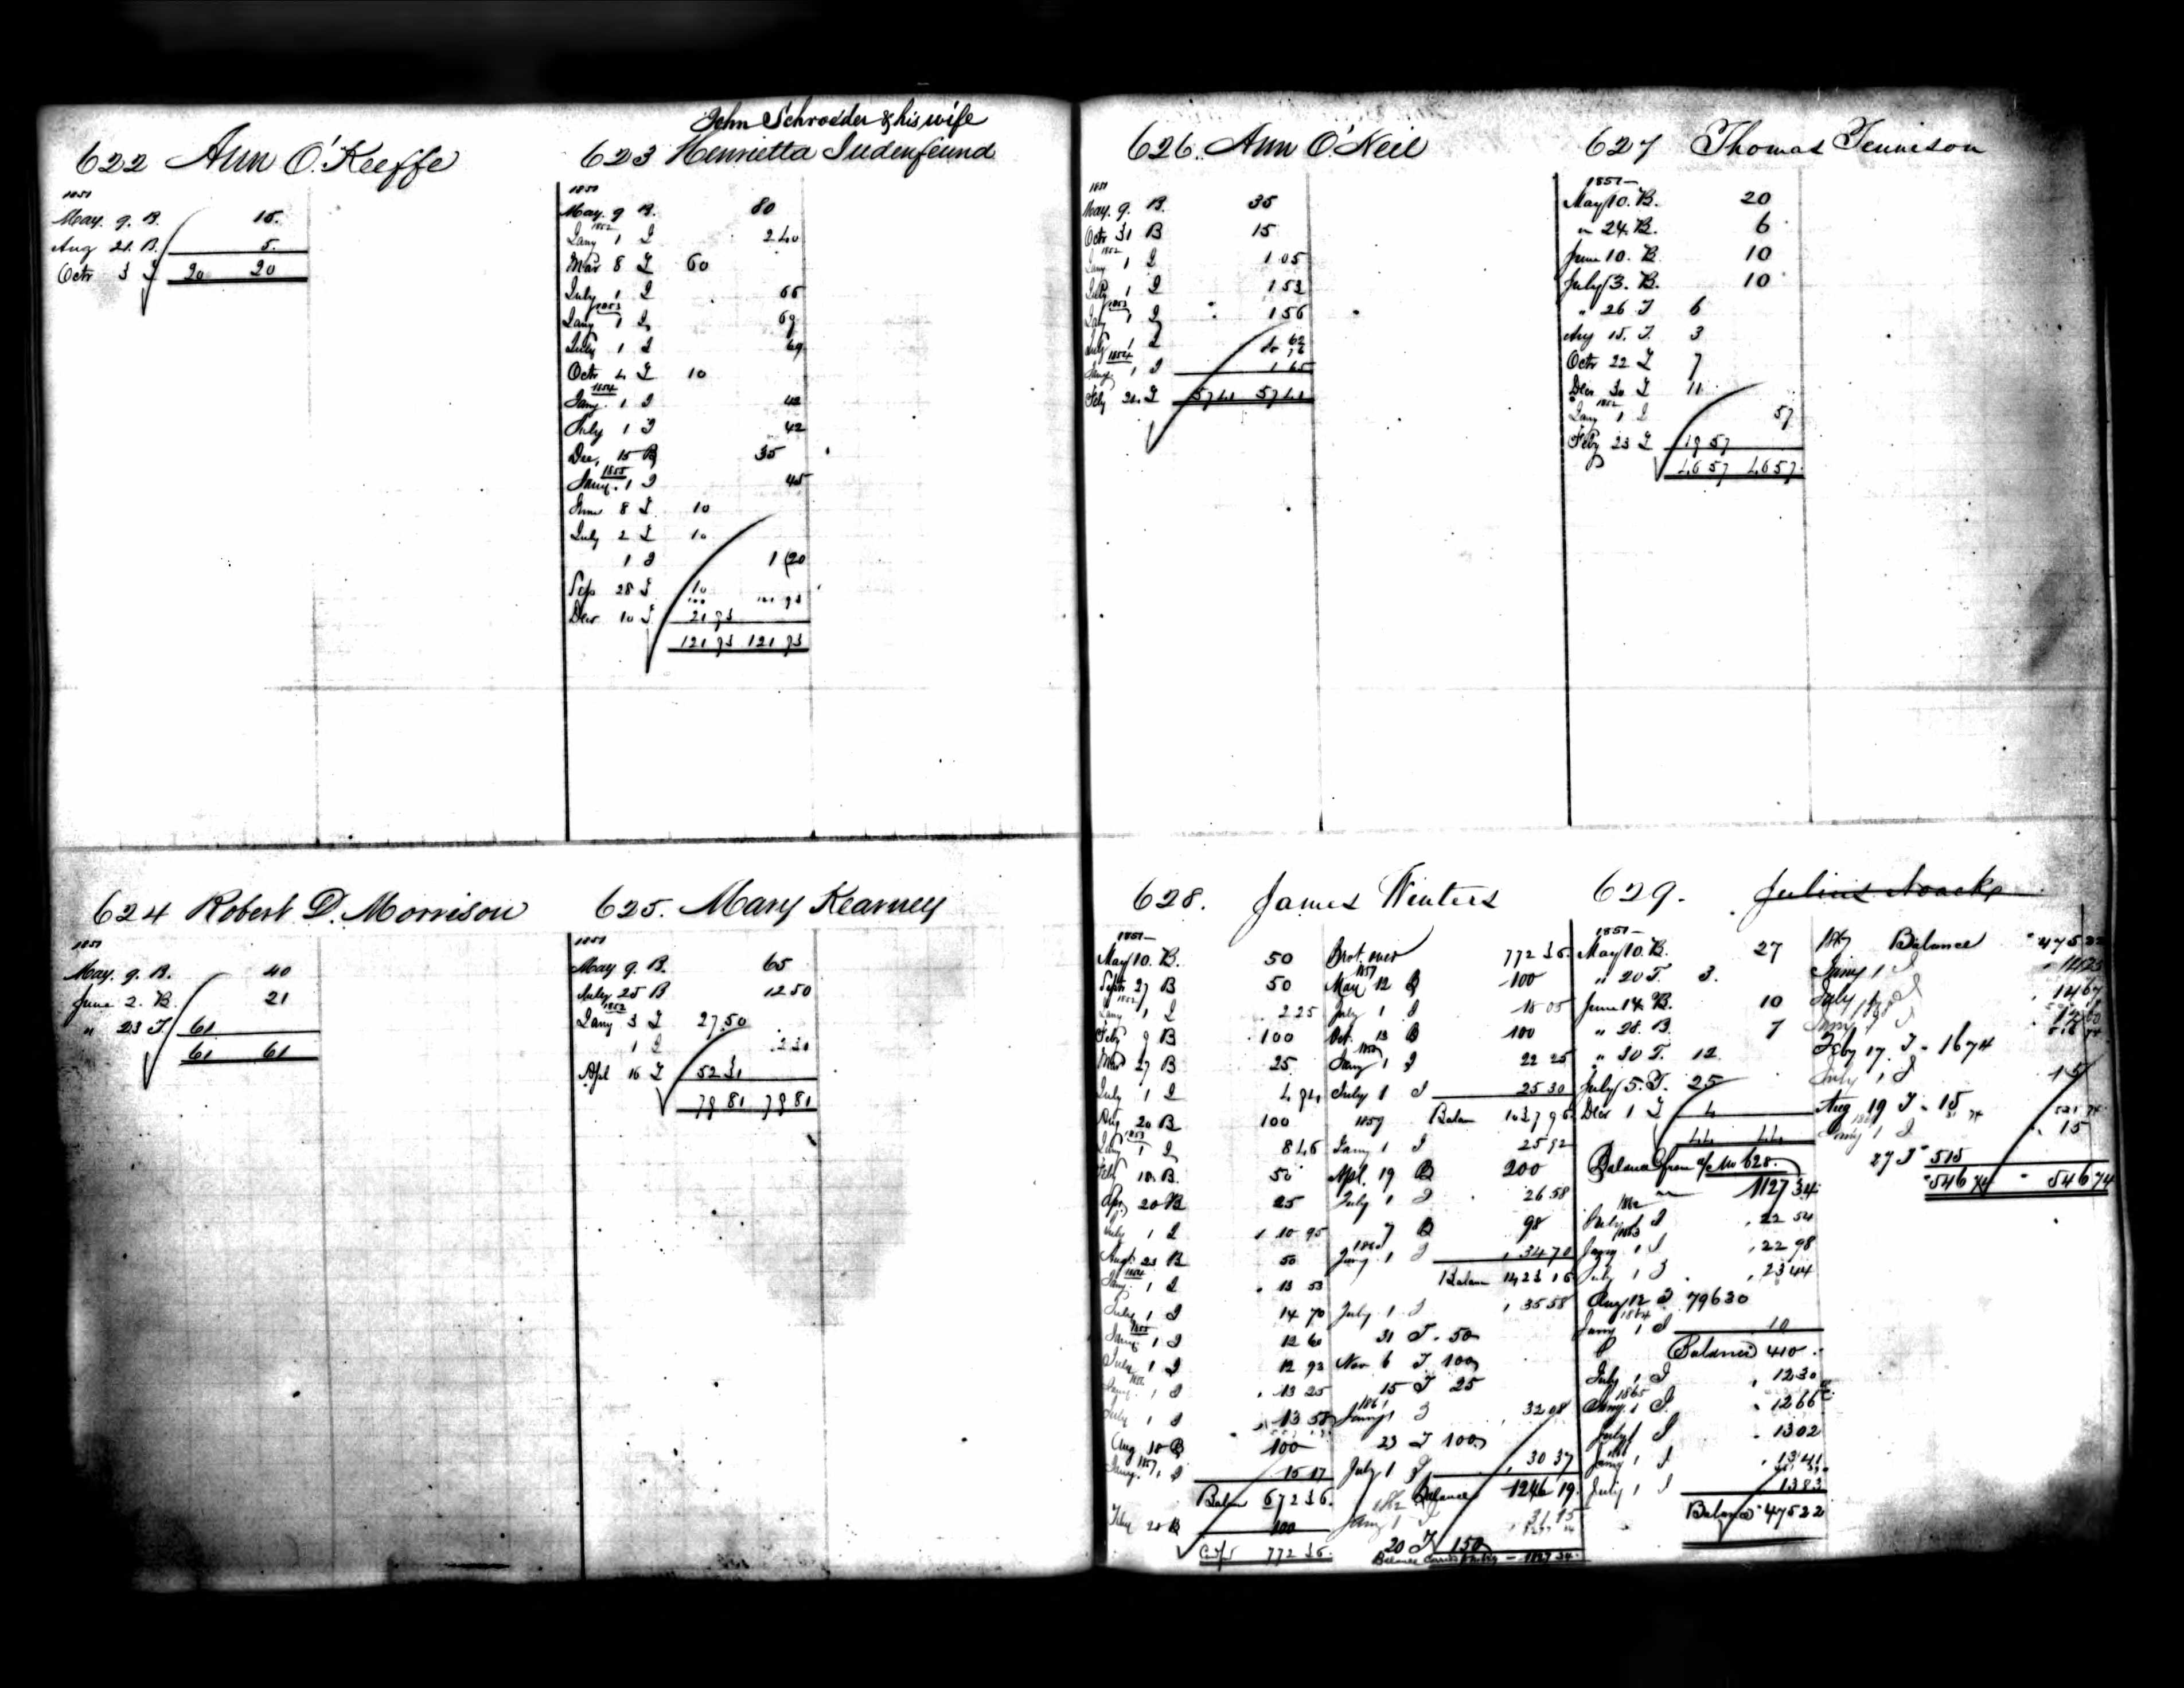 622 Ann O'Keeffe
1851
May. 9. B. 15.
Aug 21. B. 5.
Octr 3 T 20 20
John Schroeder & his wife
623 Henrietta Judenfeind
1851
May. 9 B. 80
1852
Jany 1 I 2 40
Mar 8 T 60
July 1 I 66
1853
Jany 1 I 69
July 1 I 69
Octr 4 T 10
1854
Jany. 1 I 42
July 1 I 42
Dec, 15 B 35
1855
Jany. 1 I 45
June 8 T 10
July 2 T 10
1 I 1 20
Sep 28 T 10
Decr 10 T 21 93
121 93 121 93
624 Robert D. Morrison
1851
May. 9. B. 40
June 2. B. 21
" 23 T. 61
61 61
625. Mary Kearney
1851
May 9. B. 65
July 25 B 12 50
1852
Jany 3 T 27.50
1 I 2 31
Apl 16 T 52 31
79 81 79 81
626. Ann O'Neil
1851
May. 9. B. 35
Octr 31 B 15
1852
Jany 1 I 1 05
July 1 I 1 53
1853
Jany 1 I 1 56
July 1 I
1854
Jany 1 I 1 65
Feby 21. T 57 41 57 41
627 Thomas Tennison
1851
May 10. B. 20
" 24. B. 6
June 10. B. 10
July 3. B. 10
" 26 T 6
Aug 15. T. 3
Octr 22 T 7
Decr 30 T 11
1852
Jany 1 I 57
Feby 23 T 19 57
46 57 46 57
628. James Winters
1851
May 10. B. 50
Septr 27 B 50
1852
Jany 1 I 2 25
Feby 9 B 100
Mar 27 B 25
July 1 I 4 94
Aug 20 B 100
1853
Jany 1 I 8 46
Feby 18. B. 50
Apr. 20 B 25
July 1 I 10 95
Augt 23 B 50
1854
Jany. 1 I 13 53
July 1 I 14 70
1855
Jany 1 I 12 61
July 1 I 12 93
Jany. 1 I 13 25
July 1 I 13 58
Aug 18 B 100
Jany. 1857 1 I 15 17
Balan 672 36.
Feby 20 B 100
C/f 772 36.
Brot. over 772 36.
1857
May 12 B 100
July 1 I 18 05
Oct. 13 B 100
1858
Jany 1 I 22 25
July 1 I 25 30
Balan 1037 96
1859
Jany 1 I 25 92
Apl. 19 B 200
July 1 I 26 58
7 B 98
1860
Jany. 1 I 34 70
Balan 1423 16
July 1 I 35 58
31 T. 50
Nov 6 T 100
15 T 25
1861
Jany 1 I 32 08
23 T 100
July 1 I 30 37
Balance 1246 19.
1862
Jany 1 I 31 15
20 T 150
Balance Carried to 629 1127 34
629. Julius Noack
1851
May 10. B. 27
" 20 T. 3.
June 14. B. 10
" 28. B. 7
" 30 T. 12
July 5. T. 25
Decr 1 T 4
44 44
Balance from a/c No 628.
1127 34
1862
July 1 I 22 54
1863
Jany 1 I 22 98
July 1 I 23 44
Aug 12 T 796 30
1864
Jany 1 I 10
Balance 410
July 1 I 12 30
1865
Jany. 1 I. 12 66
July 1 I 13 02
Jany 1 I 13 41
July 1 I 13 83
Balance 475 22
1867 Balance 475 22
Jany 1 I 14 25
July 1 I 14 67
Jany 1 I
Feby 17. T. 16 74
July 1 I 15
Aug 19 T. 15
Jany 1 I 15
27 T 515
546 74 546 74